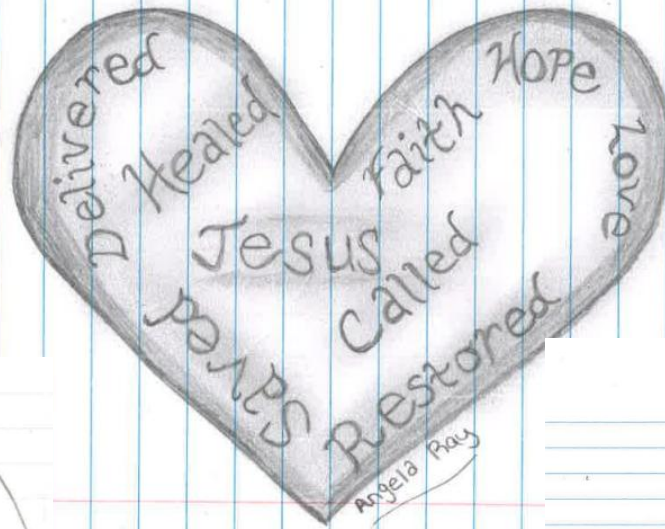 Delivered
Healed
Faith
Hope
Love
Jesus
Called
Saved
Restored
Angela Ray